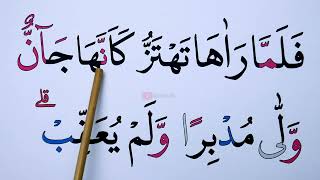 فَلَمَّا رَاٰهَا تَهْتَزُّ كَاَنَّهَا جَآنٌّ
وَّلّٰى مُدْبِرًا وَّلَمْ يُعَقِّبْ ۚ قلے